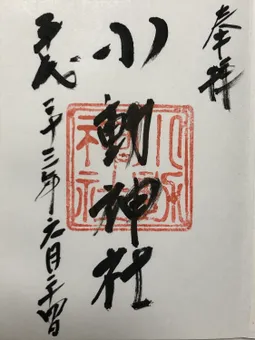 奉拝
小動神社
平成三十三年六月二十四日